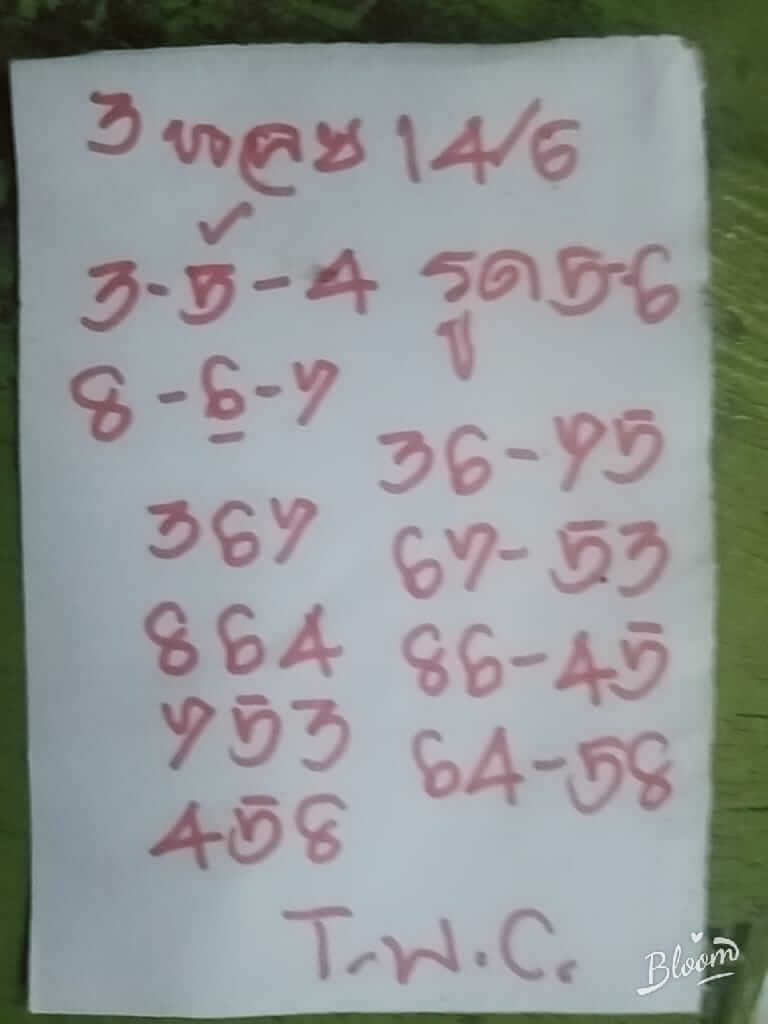 3 14/6
3-5-4 รูด 5-6
8-6-7
36-75
367
67-53
864
86-45
753
64-58
458
T.พ.C.
Bloom